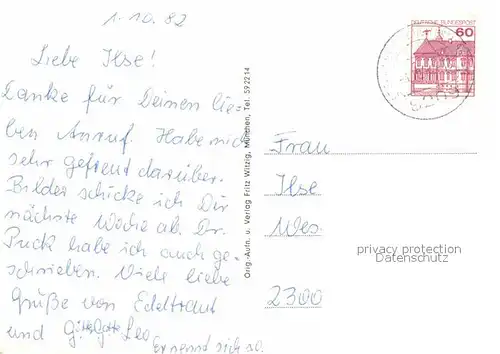 1.10.82
Liebe Ilse!
Danke für Deinen lie-
ben Anruf. Habe mich
sehr gefreut darüber.
Bilder schicke ich Dir
nächste Woche ab. Dr.
Puck habe ich auch ge-
schrieben. Viele liebe
Grüße von Edeltraut
und Leo
Er nennt sich so.
Orig.-Aufn. u. Verlag Fritz Witzig, München, Tel. 592214
DEUTSCHE BUNDESPOST
60
Frau
Ilse
Wes
privacy protection
Datenschutz
2300